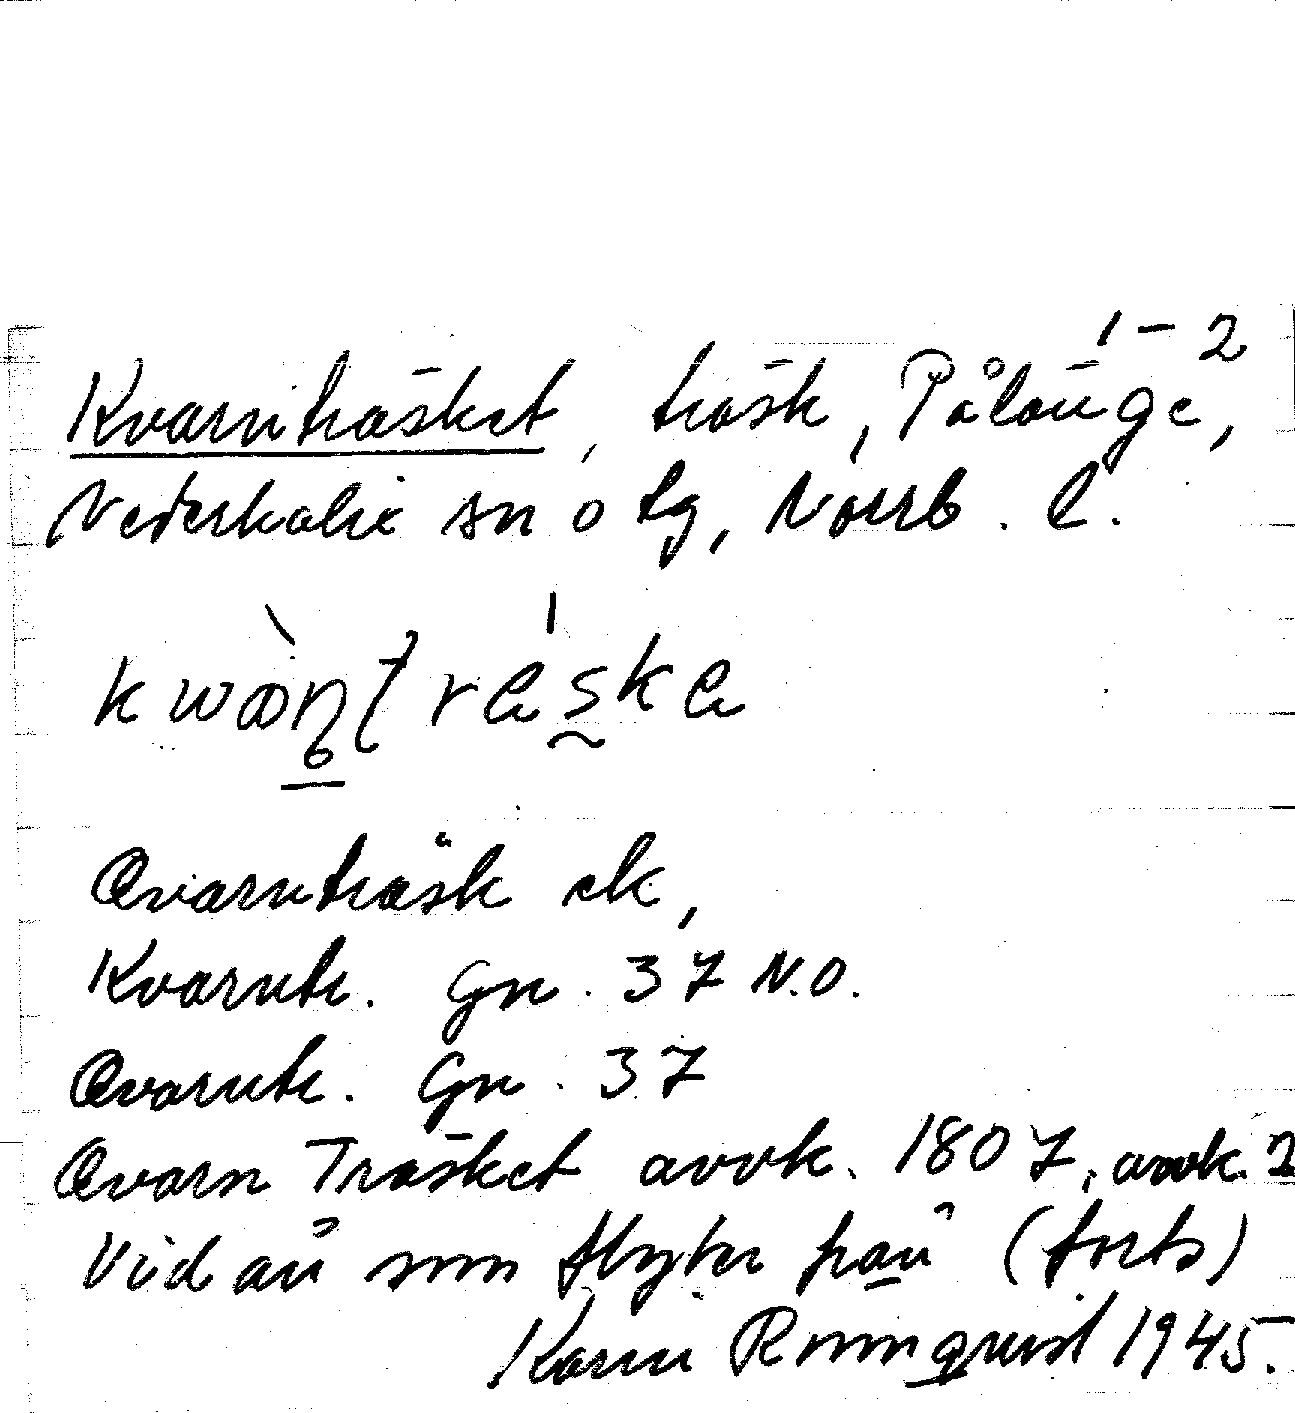 1–2
Kvarnträsket, träsk, Pålänge,
Nederkalix sn o tg, Norrb. l.
Qvarnträsk ek,
Kvarntr. Gn. 37 N.O.
Qvarntr. Gn. 37
Qvarn Träsket avvk. 1807, avvk. 2
Vid ån som flyter från (forts)
Karin Ronnquist 1945.